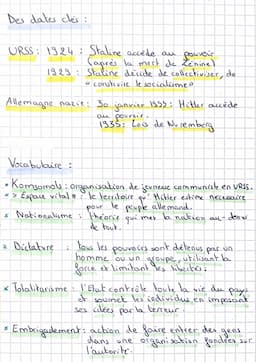 Des dates clés :
URSS : 1924 : Staline accède au pouvoir
(après la mort de Lénine)
1929 : Staline décide de collectiviser, de
"construire le socialisme"
Allemagne nazie : 30 janvier 1933 : Hitler accède
au pouvoir.
1935 : Lois de Nuremberg
Vocabulaire :
* Komsomols : organisation de jeunesse communiste en URSS.
* "Espace vital" : le territoire qu'Hitler estime nécessaire
pour le peuple allemand.
* Nationalisme : théorie qui met la nation au-dessus
de tout.
* Dictature : tous les pouvoirs sont détenus par un
homme ou un groupe, utilisant la
force et limitant les libertés.
* Totalitarisme : l'Etat contrôle toute la vie du pays
et soumet les individus en imposant
ses idées par la terreur.
* Embrigadement : action de faire entrer des gens
dans une organisation fondées sur
l'autorité.